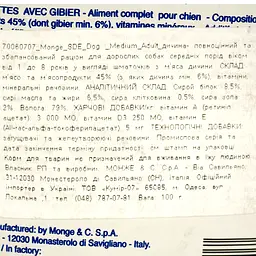 TES AVEC GIBIER - Aliment complet pour chien - Compositio
ts 45% (dont gibier min. 6%), vitamines
70080707_Monge_BDE_Dog _Medium_Adult_дичина повноцінний та
збалансований раціон для дорослих собак середніх порід віком
від 1 до 8 років у вигляді шматочків з м'яса дичини. СКЛАД
м'ясо та м'ясопродукти 45% (з яких дичина min. 6%), вітаміни,
мінеральні речовини. АНАЛІТИЧНИЙ СКЛАД Сирий білок 8.5%,
сирі масла та жири 6.5%, сира клітковина 0.5% сира зола
2% Волога 79%. ХАРЧОВІ ДОБАВКИ/кг: вітамін А (ретиніл
ацетат) 3 000 МО, вітамін D3 250 МО, вітамін Е
(Альфа-альфа-токоферилацетат) 5 мг. ТЕХНОЛОГІЧНІ ДОБАВКИ
загущувачі та желеутворюючі речовини. Промислова серія та
дата закінчення терміну придатності: см штамп на упаковці
Корм для тварин не призначений для вживання в їжу людиною.
Власник РП та виробник: МОНЖЕ & С. С.р.А - Віа Савильяно,
31-12030 Монастероло ді Савильяно (CN), Італія. Офіційний
імпортер в Україні: ТОВ «Кумір-07» 65085, м. Одеса, вул.
Локальна ,1, тел: (048) 787-07-81 Вага: 100 г.
ufactured: by Monge & C. S.p.A.
- 12030 Monasterolo di Savigliano - Italy.